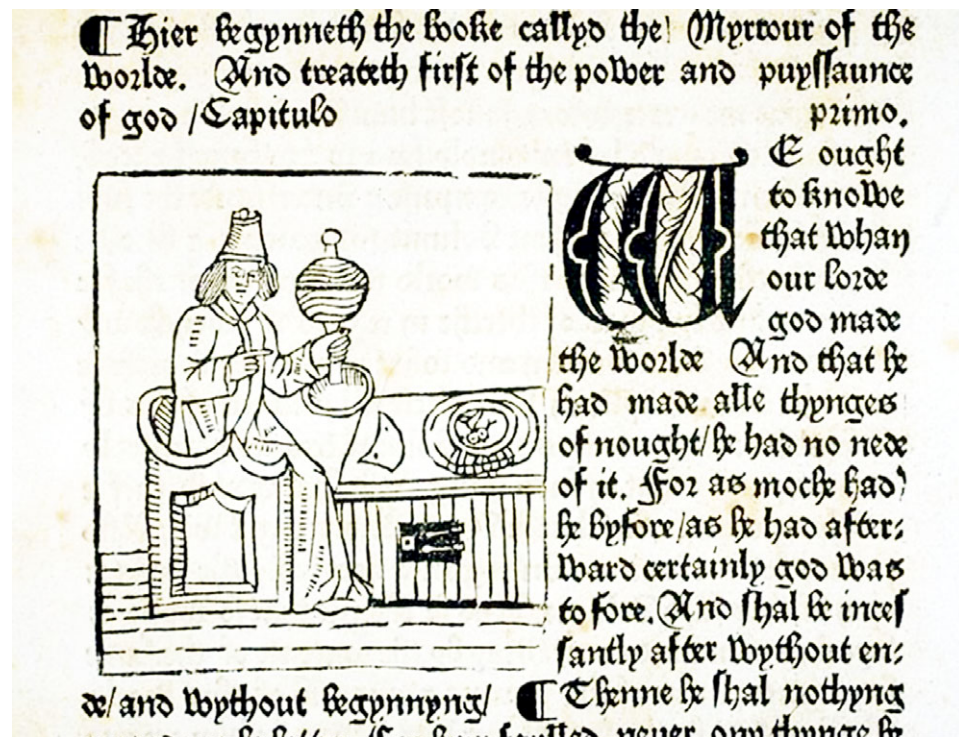 ¶ Hier begynneth the booke callyd the Myrrour of the
worlde. And treateth first of the power and puyssaunce
of god / Capitulo primo.
WE ought
to knowe
that whan
our lorde
god made
the worlde And that he
had made alle thynges
of nought/he had no nede
of it. For as moche had
he byfore/as he had after:
ward certainly god was
to fore. And shal be inces
santly after wythout en:
de/and wythout begynnyng/ ¶ Thenne he shal nothyng
never ony thynge he